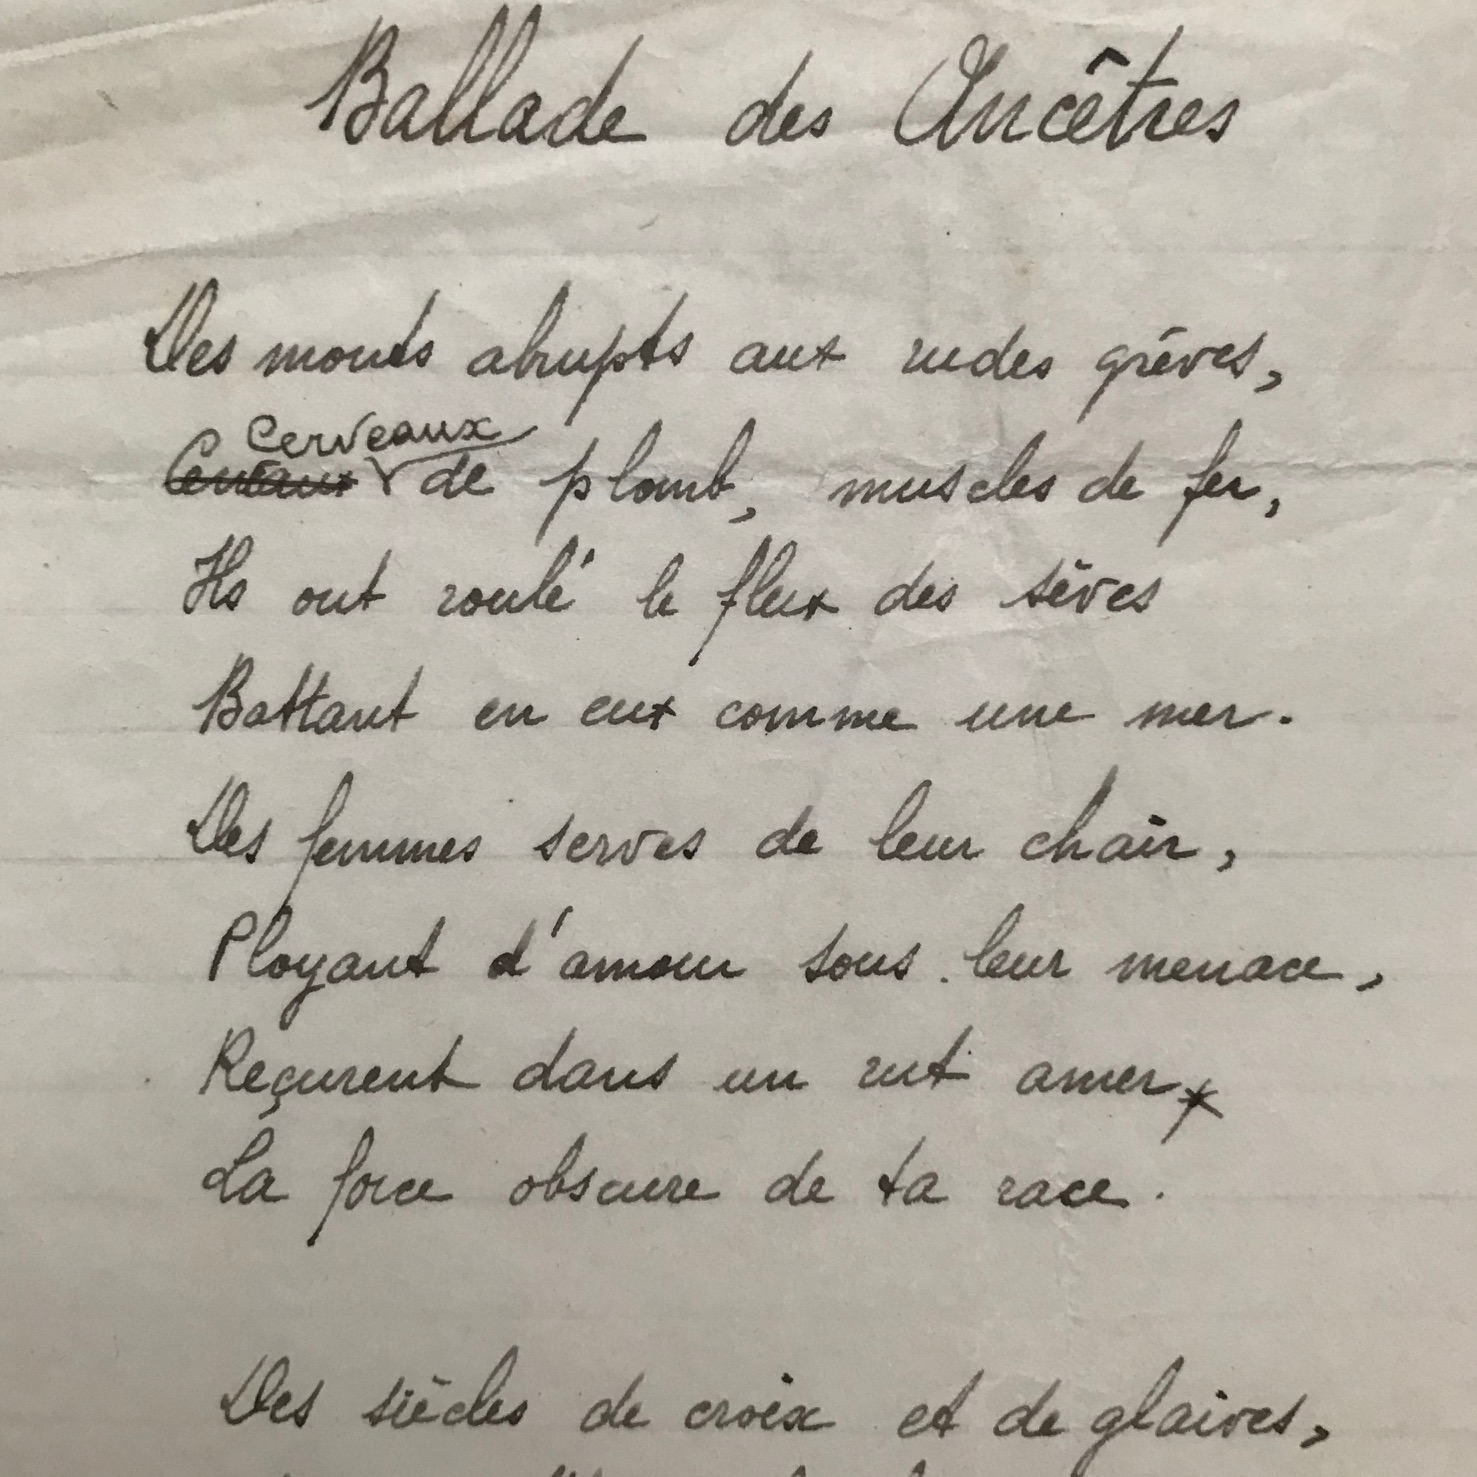 Ballade des Ancêtres
Des monts abrupts aux rudes grèves,
Cerveaux
de plomb, muscles de fer,
Ils ont roulé le flux des sèves
Battant en eux comme une mer.
Des femmes serves de leur chair,
Ployant d'amour sous leur menace,
Reçurent dans un rut amer
La force obscure de ta race.
Des siècles de croix et de glaives,